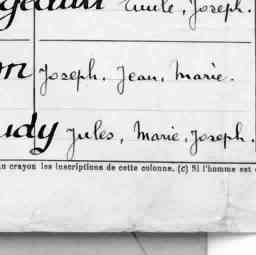 Emile, Joseph.
Joseph. Jean, Marie.
udy Jules, Marie, Joseph.
au crayon les inscriptions de cette colonne. (c) Si l'homme est